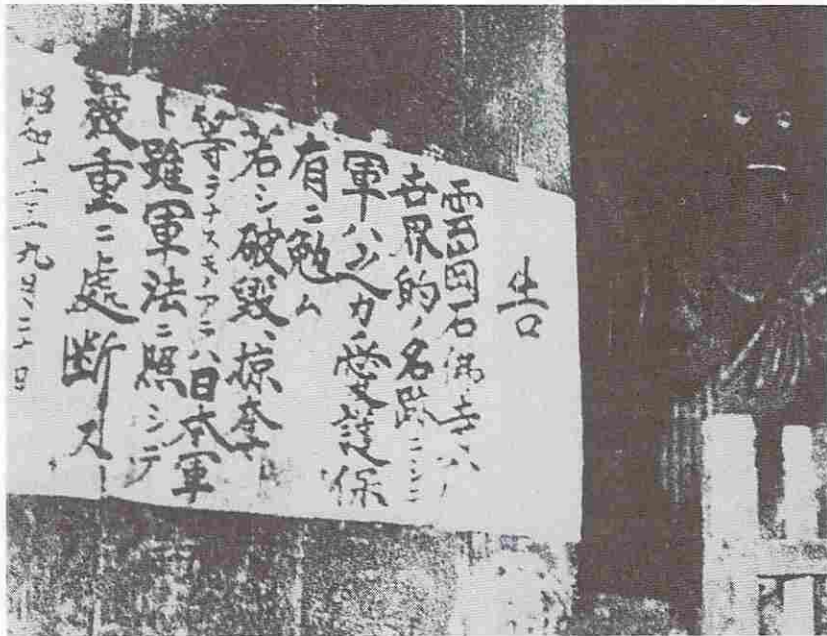 告
雲岡石佛寺ハ
世界的ノ名跡ニシテ
軍ハ之カ愛護保
有ニ勉ム
若シ破毀、掠奪
等ヲナスモノアラハ日本軍
ト雖軍法ニ照シテ
嚴重ニ處断ス
昭和十二年九月二十日